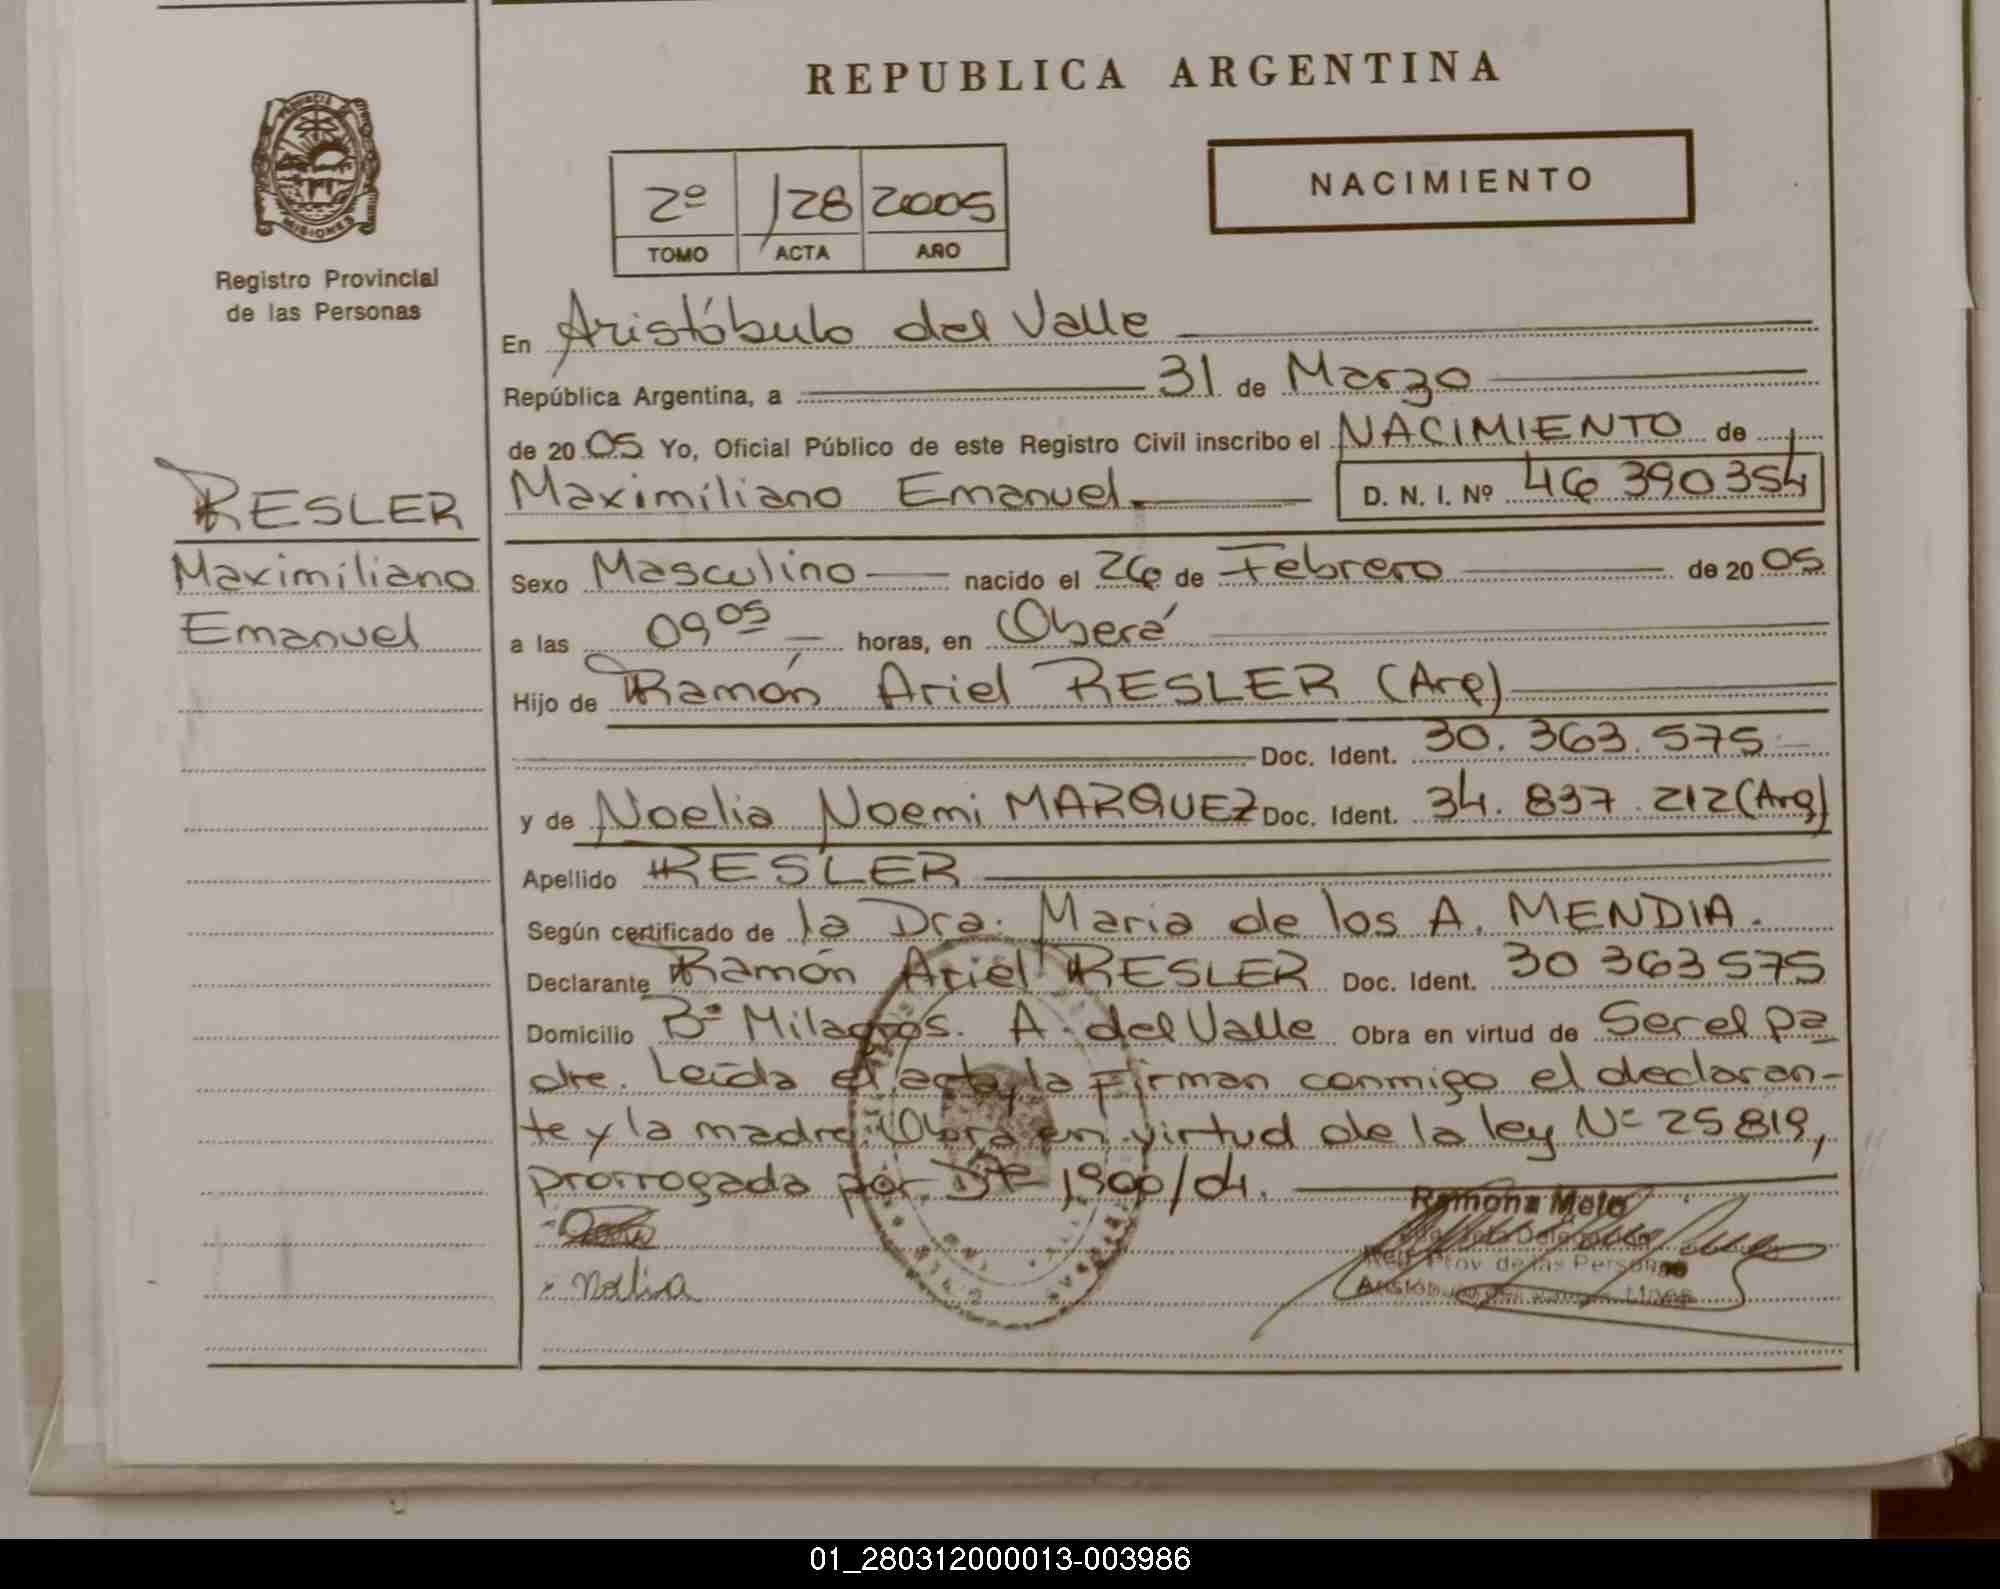 REPUBLICA ARGENTINA
PROVINCIA
MISIONES
Registro Provincial
de las Personas
2º 128 2005
TOMO ACTA AÑO
NACIMIENTO
En Aristóbulo del Valle
República Argentina, a 31 de Marzo
de 2005 Yo, Oficial Público de este Registro Civil inscribo el NACIMIENTO de
Maximiliano Emanuel D. N. I. Nº 46 390354
RESLER
Maximiliano
Emanuel
Sexo Masculino nacido el 26 de Febrero de 2005
a las 09 05 horas, en Oberá
Hijo de Ramón Ariel RESLER (Arg)
Doc. Ident. 30.363.575
y de Noelia Noemi MARQUEZ Doc. Ident. 34.837.212 (Arg)
Apellido RESLER
Según certificado de la Dra. Maria de los A. MENDIA.
Declarante Ramón Ariel RESLER Doc. Ident. 30 363575
Domicilio Bº Milagros. A. del Valle Obra en virtud de Ser el pa
dre. Leída el acta, la firman conmigo el declaran-
te y la madre. Obra en virtud de la ley Nº 25819,
prorrogada por Dto 1900/04.
Ramona Melo
Reg. Prov. de las Personas
Noelia
01_280312000013-003986